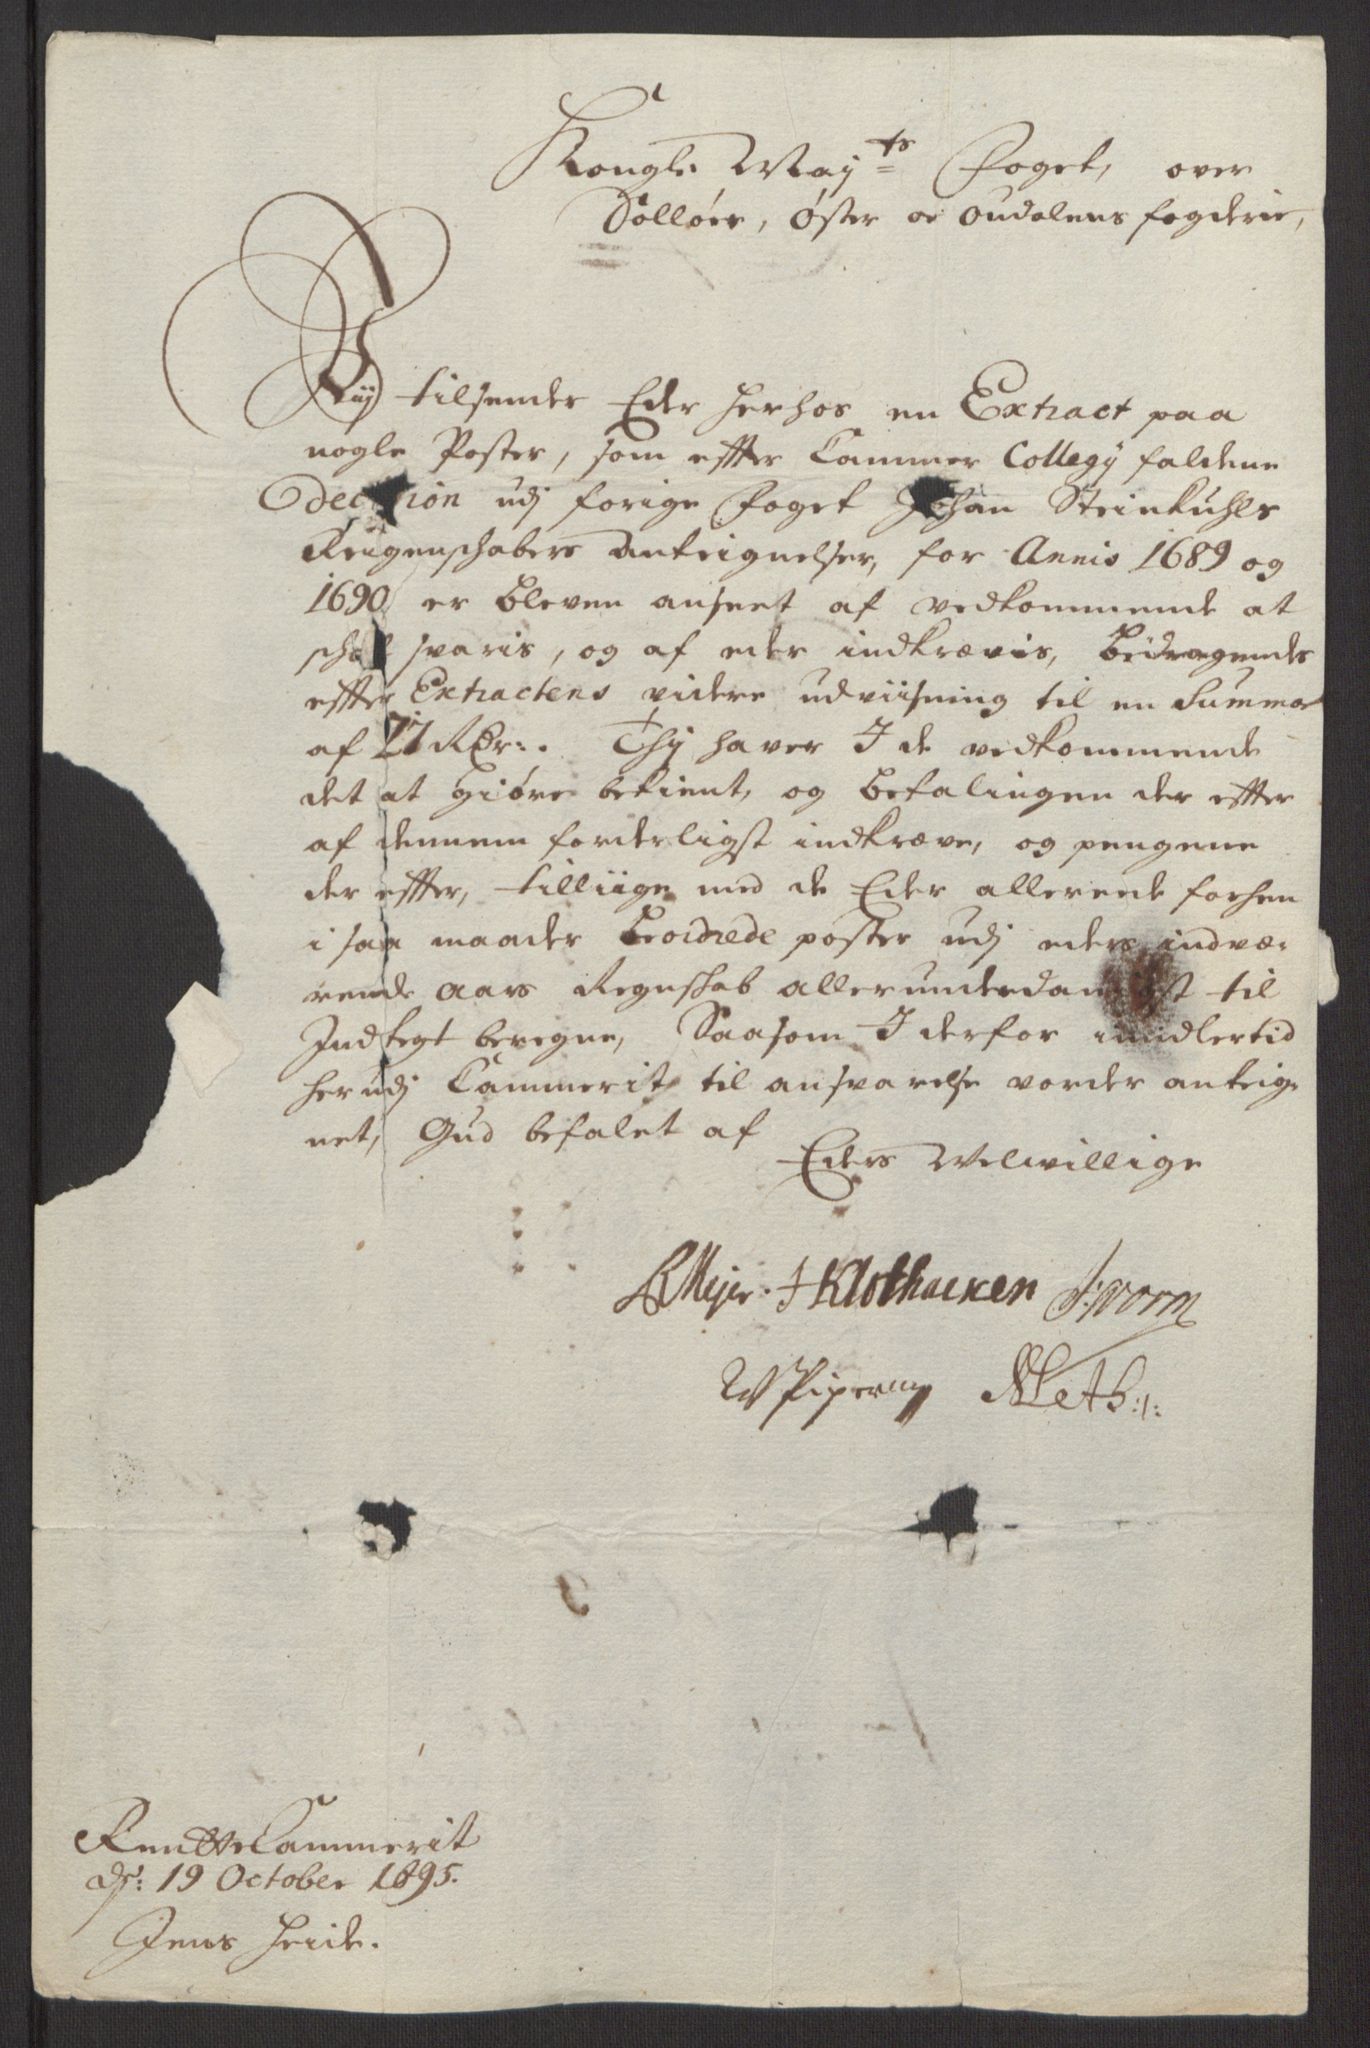 Kongl: Maij^ts Foget, over
Solløer, Øster oc Oudalens fogderie,
Wij tilsender Eder herhos en Extract paa
nogle Poster, som effter Cammer Collegij faldene
Decision udj forige Foget Johan Steinkuhls
Reigenschabers Anteignelser, for Annis 1689 og
1690 er bleven anseet af vedkommende at
schal svaris, og af eder indkrævis, bedragendes
effter Extractens videre udviisning til en Summa
af 21 Rdr:. Thj haver I de vedkommende
det at giøre bekient, og betalingen der effter
af dennem forderligst indkræve, og pengene
der effter, tilliige med de Eder allerede forhen
i saa maader beordrede poster udj eders indvæ-
rende Aars Regnskab allerunderdanigst til
Indtegt beregne, Saasom I derfor imidlertid
her udj Cammerit til ansvarelse vorder anteig-
net, Gud befalet af
Eders Welwillige
Meyer. H Klothacken J: Worm
W Piper Meth:/:
Rentte Cammerit
ds: 19 October 1695.
Jens Heide.